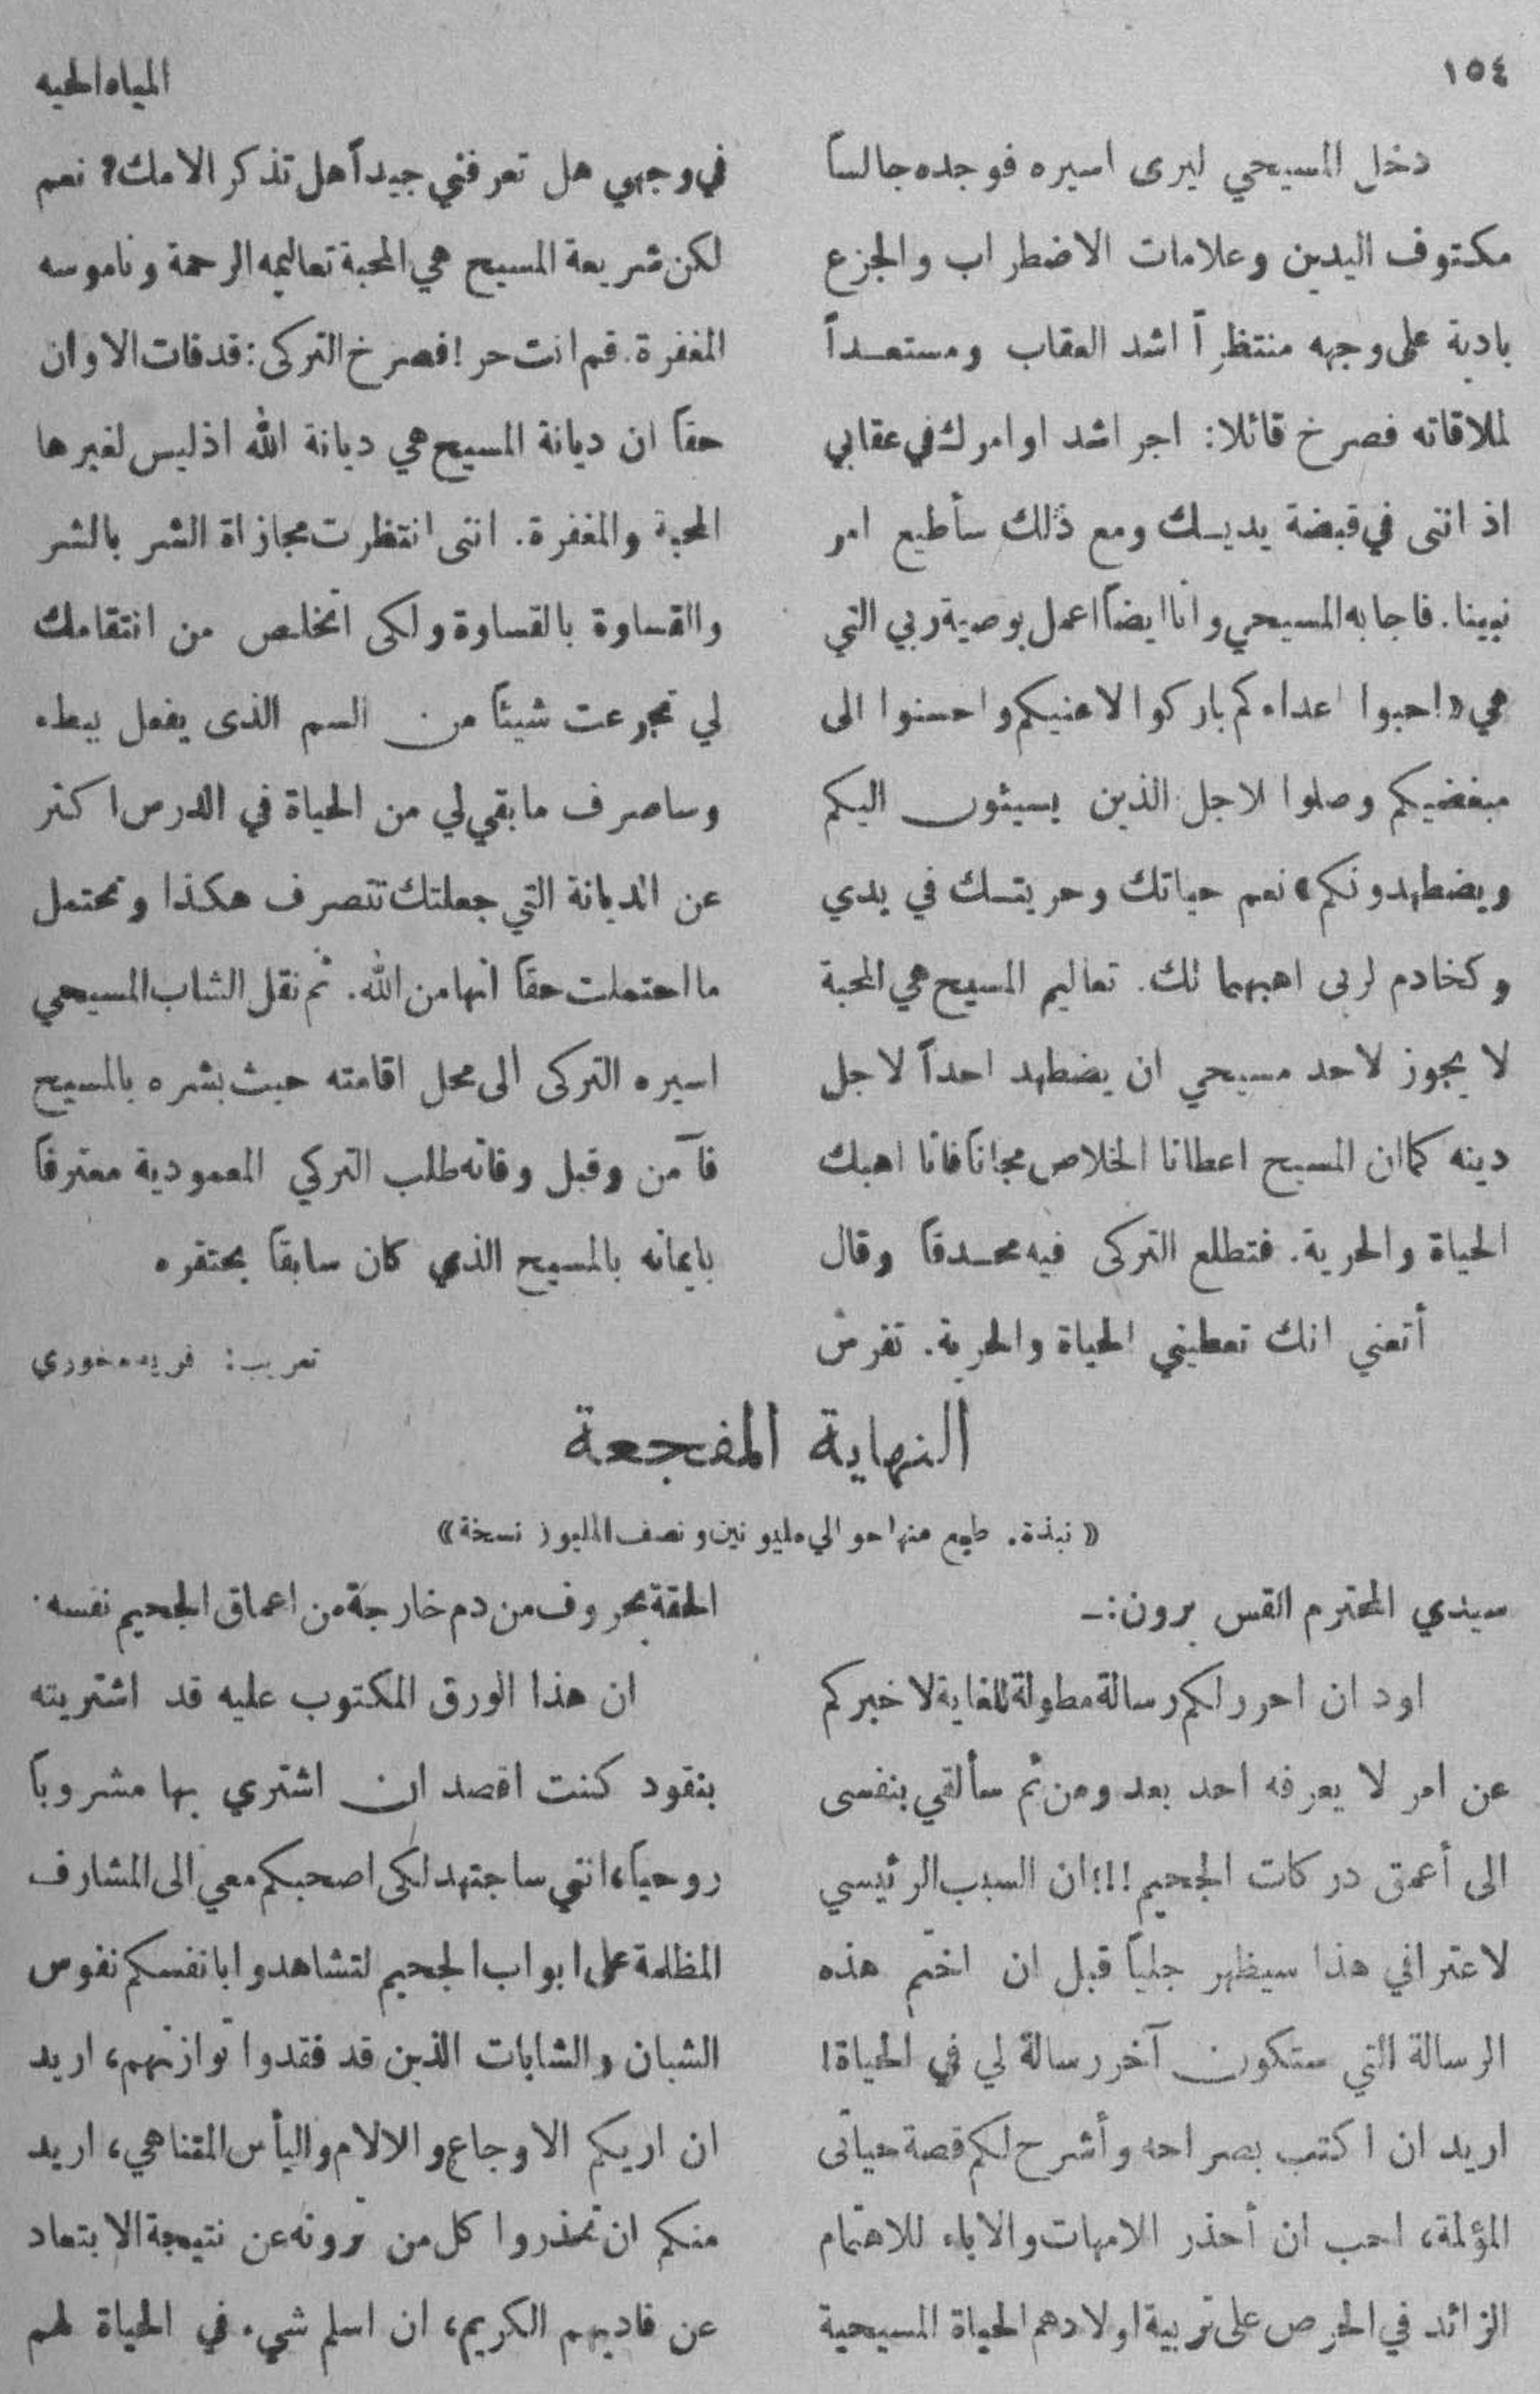 ١٥٤
المياه الحيه
دخل المسيحي ليرى اسيره فوجده جالساً
مكتوف اليدين وعلامات الاضطراب والجزع
بادية على وجهه منتظراً اشد العقاب ومستعداً
لملاقاته فصرخ قائلا: اجر اشد اوامرك في عقابي
اذ انني في قبضة يديك ومع ذلك سأطيع امر
نبينا. فاجابه المسيحي وانا ايضاً اعمل بوصية ربي التي
هي «احبوا اعداءكم باركوا لاعنيكم واحسنوا الى
مبغضيكم وصلوا لاجل الذين يسيئون اليكم
ويضطهدونكم» نعم حياتك وحريتك في يدي
وكخادم لربى اهبهما لك. تعاليم المسيح هي المحبة
لا يجوز لاحد مسيحي ان يضطهد احداً لاجل
دينه كما ان المسيح اعطانا الخلاص مجاناً فانا اهبك
الحياة والحرية. فتطلع التركى فيه محدقاً وقال
أتعني انك تعطيني الحياة والحرية. تفرس
في وجهي هل تعرفني جيداً هل تذكر الامك؟ نعم
لكن شريعة المسيح هي المحبة تعاليمه الرحمة وناموسه
المغفرة. قم انت حر! فصرخ التركى: قد فات الاوان
حقاً ان ديانة المسيح هي ديانة الله اذ ليس لغيرها
المحبة والمغفرة. انني انتظرت مجازاة الشر بالشر
والقساوة بالقساوة ولكى اتخلص من انتقامك
لي تجرعت شيئاً من السم الذى يفعل ببطء
وساصرف ما بقي لي من الحياة في الدرس اكثر
عن الديانة التي جعلتك تتصرف هكذا وتحتمل
ما احتملت حقاً انها من الله. ثم نقل الشاب المسيحي
اسيره التركى الى محل اقامته حيث بشره بالمسيح
فآمن وقبل وفاته طلب التركي المعمودية معترفاً
بايمانه بالمسيح الذي كان سابقاً يحتقره
تعريب: فريد خوري
النهاية المفجعة
« نبذة. طبع منها حوالي مليونين ونصف المليون نسخة»
سيدي المحترم القس برون:ـ
اود ان احرر لكم رسالة مطولة للغاية لاخبركم
عن امر لا يعرفه احد بعد ومن ثم سألقي بنفسى
الى أعمق دركات الجحيم!!! ان السبب الرئيسي
لاعترافي هذا سيظهر جلياً قبل ان اختم هذه
الرسالة التي ستكون آخر رسالة لي في الحياة!
اريد ان اكتب بصراحه وأشرح لكم قصة حياتى
المؤلمة، احب ان أحذر الامهات والاباء للاهتمام
الزائد في الحرص على تربية اولادهم الحياة المسيحية
الحقة بحروف من دم خارجة من اعماق الجحيم نفسه.
ان هذا الورق المكتوب عليه قد اشتريته
بنقود كنت اقصد ان اشتري بها مشروباً
روحياً، انني ساجتهد لكى اصحبكم معي الى المشارف
المظلمة على ابواب الجحيم لتشاهدوا بانفسكم نفوس
الشبان والشابات الذين قد فقدوا توازنهم، اريد
ان اريكم الاوجاع والالام واليأس المتناهي، اريد
منكم ان تحذروا كل من ترونه عن نتيجة الابتعاد
عن فاديهم الكريم، ان اسلم شيء في الحياة لهم